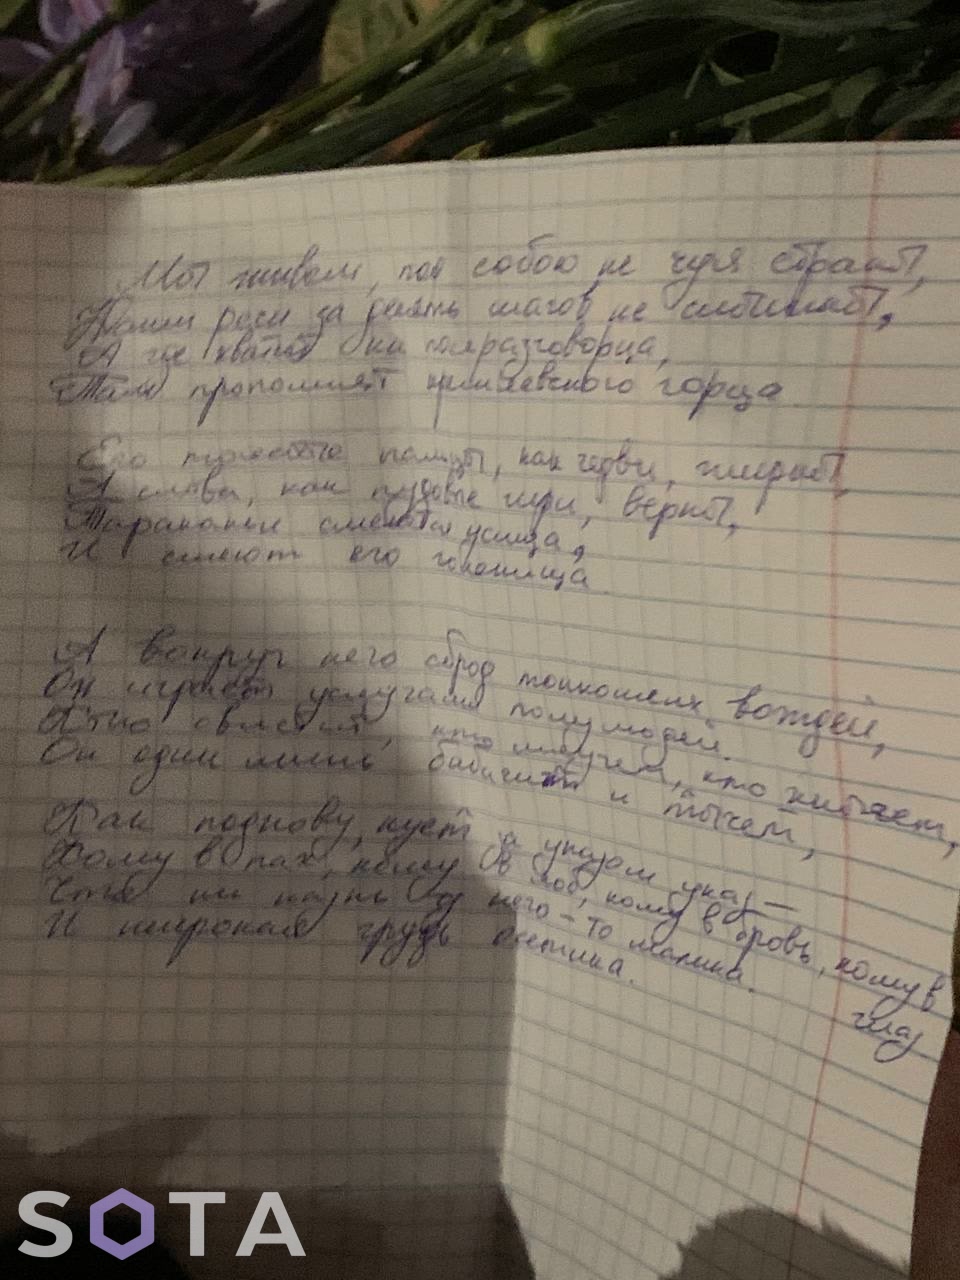 Мы живем, под собою не чуя страны,
Наши речи за десять шагов не слышны,
А где хватит на полразговорца,
Там припомнят кремлевского горца
Его толстые пальцы, как черви, жирны,
А слова, как пудовые гири, верны,
Тараканьи смеются усища,
И сияют его голенища.
А вокруг него сброд тонкошеих вождей,
Он играет услугами полулюдей.
Кто свистит, кто мяучет, кто хнычет,
Он один лишь бабачит и тычет,
Как подкову, кует указом указ —
Кому в пах, кому в лоб, кому в бровь, кому в
глаз
Что ни казнь у него - то малина.
И широкая грудь осетина.
SOTA